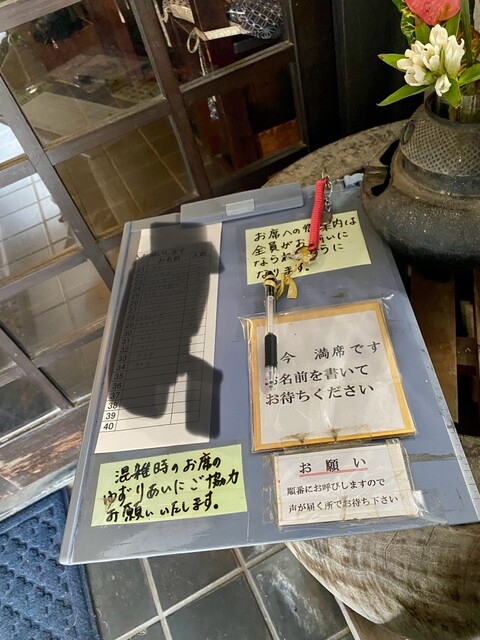 お願いします
お名前
人数
31
32
33
34
35
36
37
38
39
40
お席へのご案内は
全員がお揃いに
なられたように
なります。
今　満席です
お名前を書いて
お待ちください
混雑時のお席の
ゆずりあいにご協力
お願いいたします。
お願い
順番にお呼びしますので
声が届く所でお待ち下さい